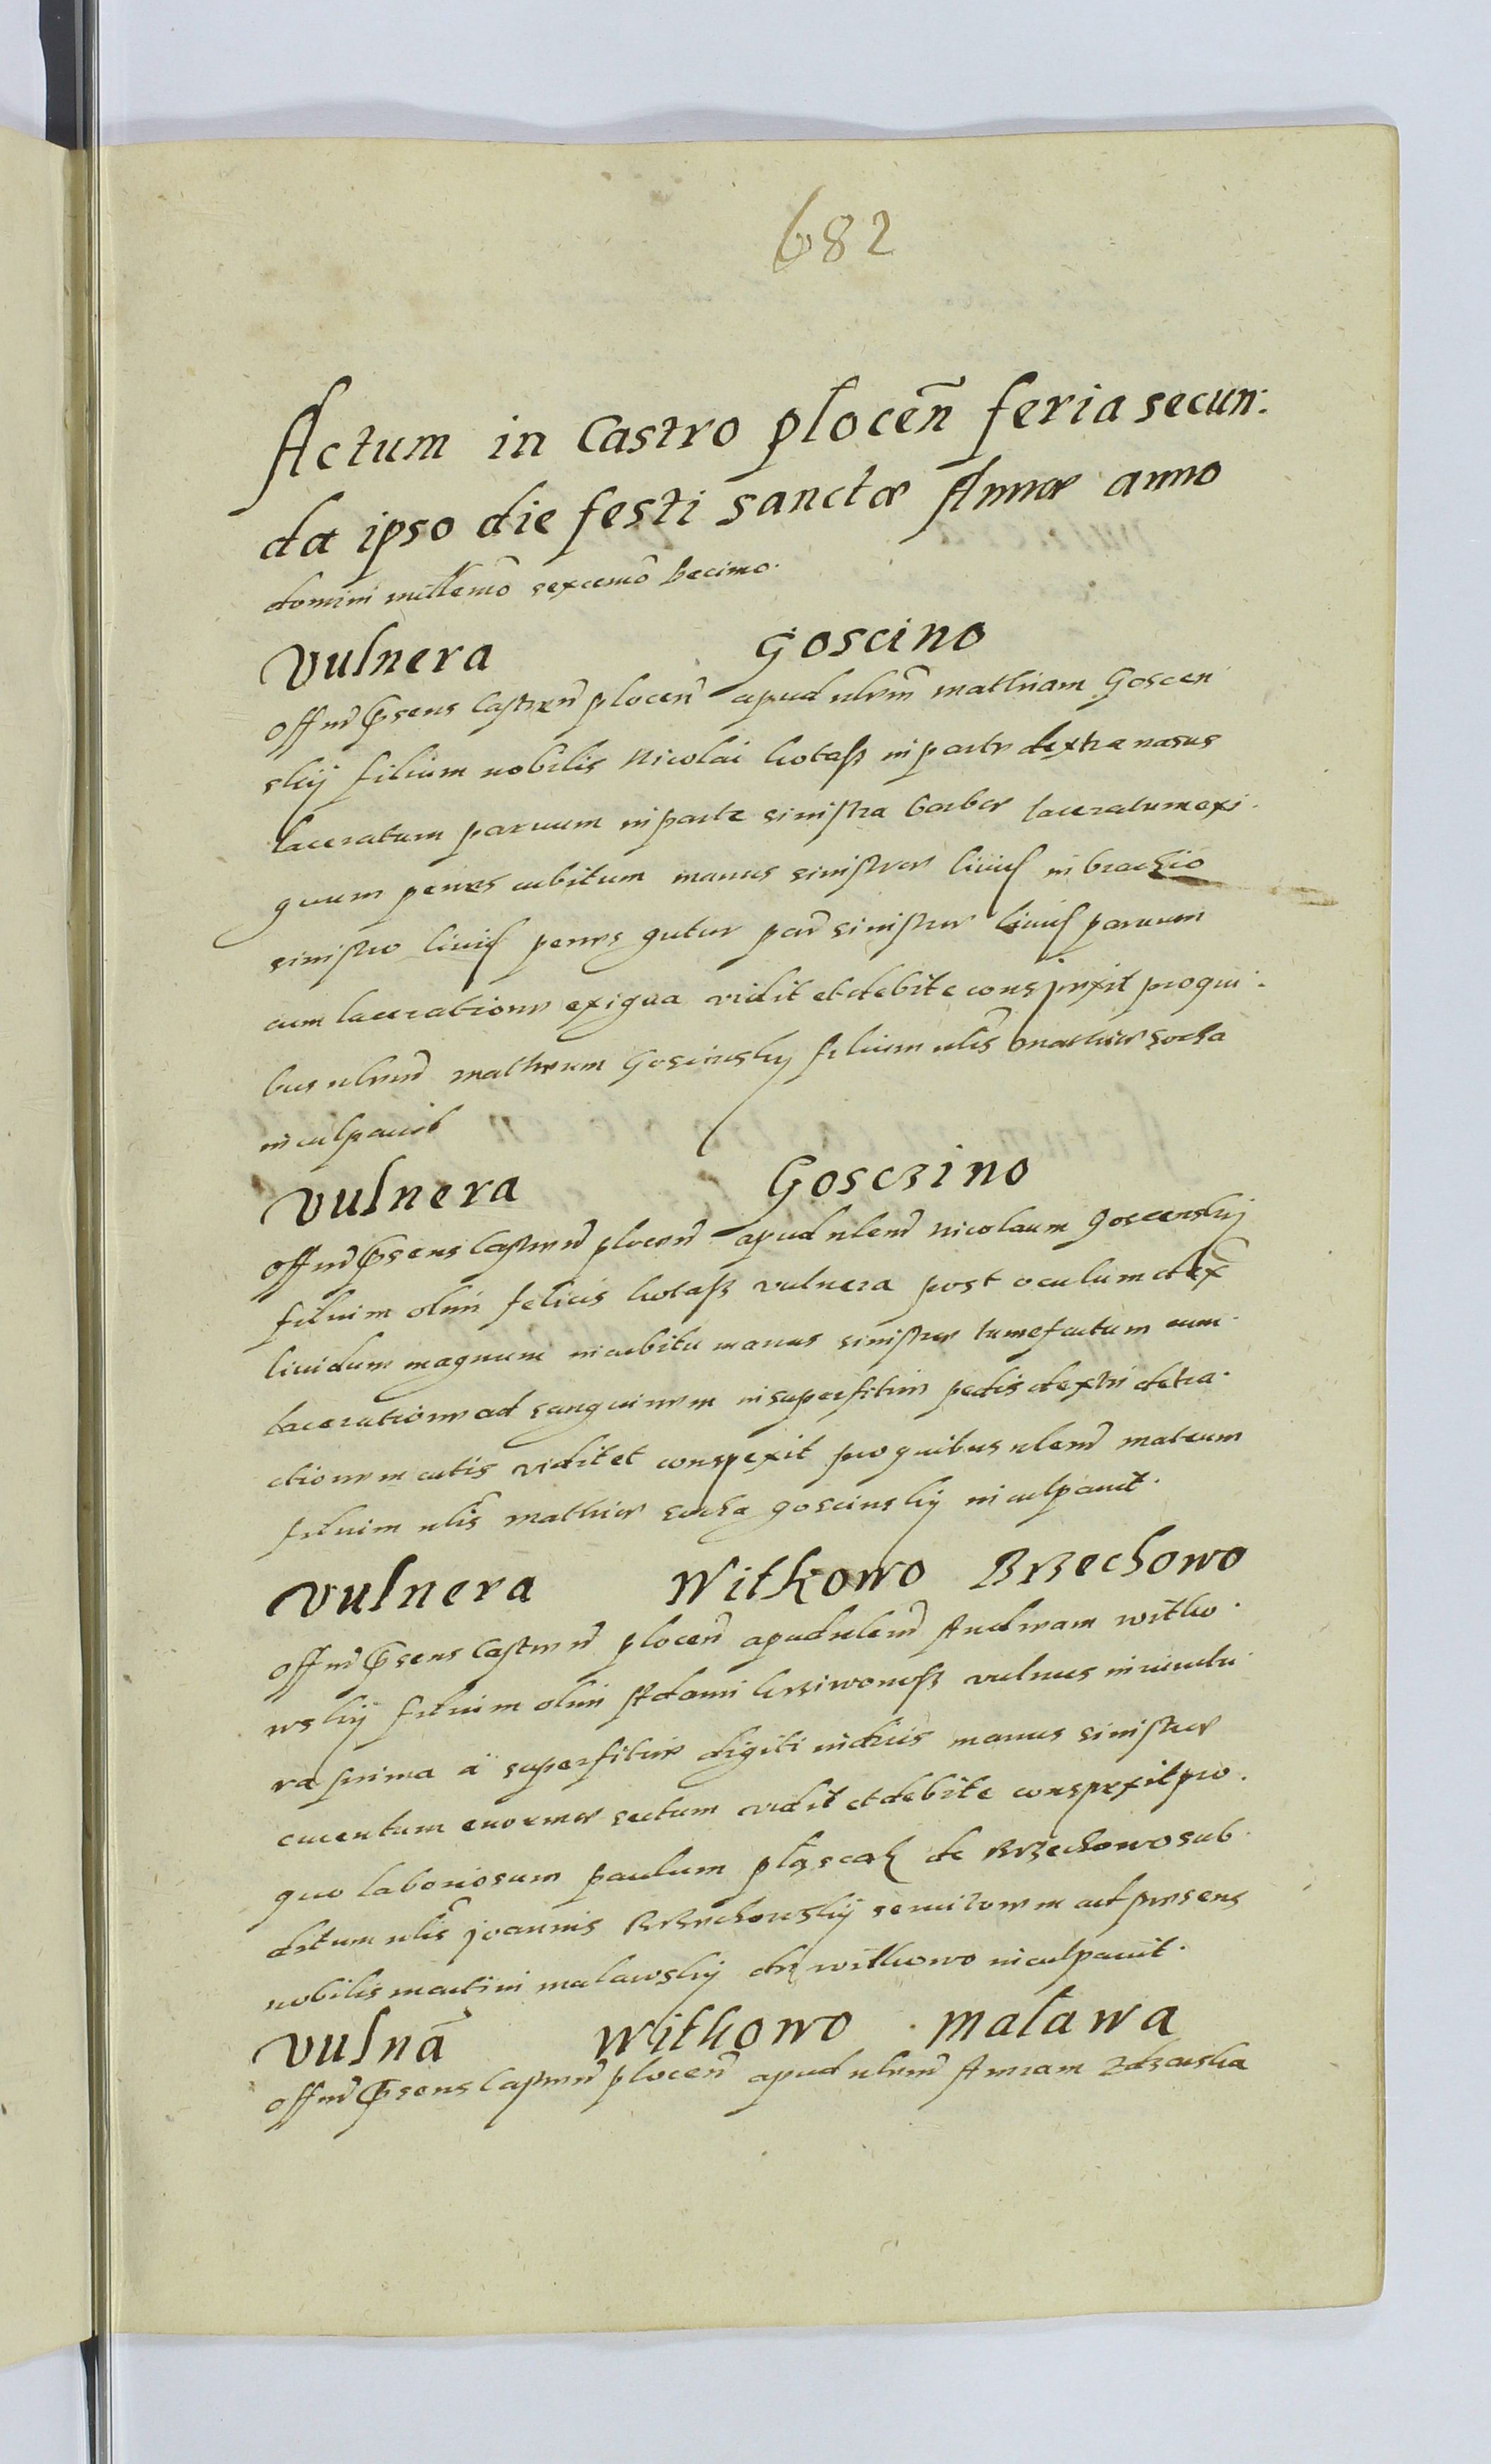 682
Actum in Castro plocen̄ feria secun:
da ipso die festi sanctæ Annæ anno
domini millemō sexcemō decimo.
Vulnera Goscino
Off nd̄ Psens Castren̄ plocen̄ apud nlem̄ mathiam Goscen
skij filium nobilis Nicolai kotaß in parte dextra nasus
laceratum paruum in parte sinistra barbæ laceratum exi.
guum penes cubitum manus sinistræ liuid in brachio
sinistro liuid penes gutur par̄ sinistræ liuid paruum
cum laceratione exigua vidit et debite conspexit pro qui.
bus nlem̄ matheum Goscinskij filium nlis̄ mathiæ socha
inculpauit
Vulnera Gosczino
Off nd̄ Psens Castren̄ plocen̄ apud nlem̄ nicolaum goscenskij
filium olim felicis kotaß vulnera post oculum dex̄
liuidum magnum in cubitu manus sinistræ tumefactum cum.
laceratione ad sanguinem in superfitie pedis dextri detra.
ctionem cutis vidit et conspexit pro quibus nlem̄ mateum
filium nlis̄ mathiæ socha goscinskij inculpauit.
Vulnera Witkowo Brzechowo
Off nd̄ Psens Castren̄ plocen̄ apud nlem̄ Andream witko.
wskij filium olim Adami krziwonoß vulnus in iunctu.
ra prima a superfitie digiti indicis manus sinistræ
cruentum enorme sectum vidit et debite conspexit pro.
quo laboriosum paulum de Brzechowo sub.
ditum nlis̄ joannis Brzechowskij seruitorem ad presens
nobilis martini malawskij de witkowo inculpauit.
Vulnā Witkowo malawa
Off nd̄ Psens Castren̄ plocen̄ apud nlem̄ Annam Zdzarska